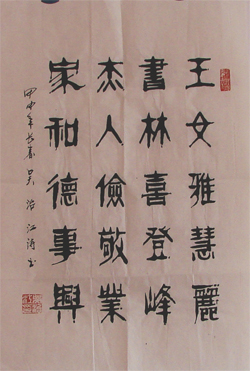 王女雅慧麗
書林喜登峰
杰人儉敬業
家和德事興
甲申年长春吴江书